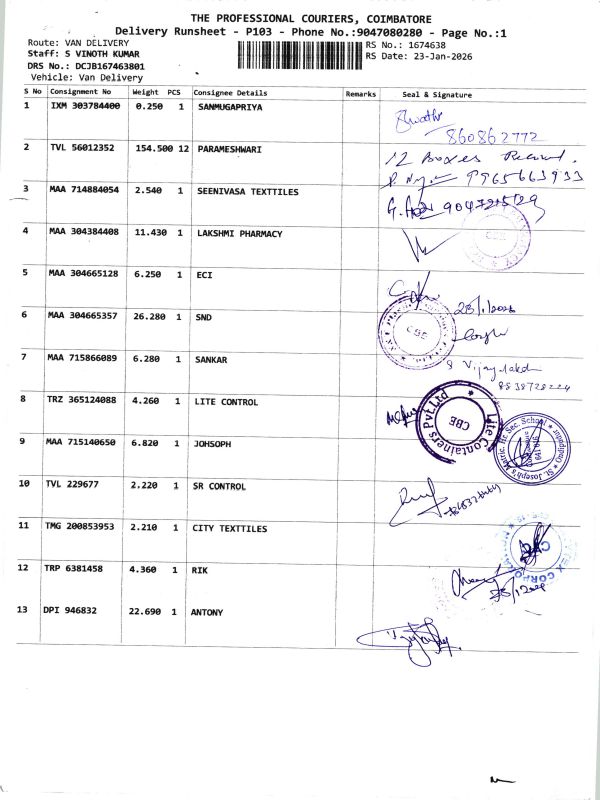 THE PROFESSIONAL COURIERS, COIMBATORE
Delivery Runsheet - P103 - Phone No.:9047080280 - Page No.:1
Route: VAN DELIVERY
RS No.: 1674638
Staff: S VINOTH KUMAR
RS Date: 23-Jan-2026
DRS No.: DCJB167463801
Vehicle: Van Delivery
S No Consignment No Weight PCS Consignee Details Remarks Seal & Signature
1 IXM 303784400 0.250 1 SANMUGAPRIYA
860862772
2 TVL 56012352 154.500 12 PARAMESHWARI
12 Boxes
9965663933
3 MAA 714884054 2.540 1 SEENIVASA TEXTTILES
4 MAA 304384408 11.430 1 LAKSHMI PHARMACY
5 MAA 304665128 6.250 1 ECI
6 MAA 304665357 26.280 1 SND
CBE
7 MAA 715866089 6.280 1 SANKAR
8 TRZ 365124088 4.260 1 LITE CONTROL
Lite Containers Pvt Ltd
CBE
9 MAA 715140650 6.820 1 JOHSOPH
St. Joseph's Matric. Hr. Sec. School
10 TVL 229677 2.220 1 SR CONTROL
11 TMG 200853953 2.210 1 CITY TEXTTILES
12 TRP 6381458 4.360 1 RIK
13 DPI 946832 22.690 1 ANTONY